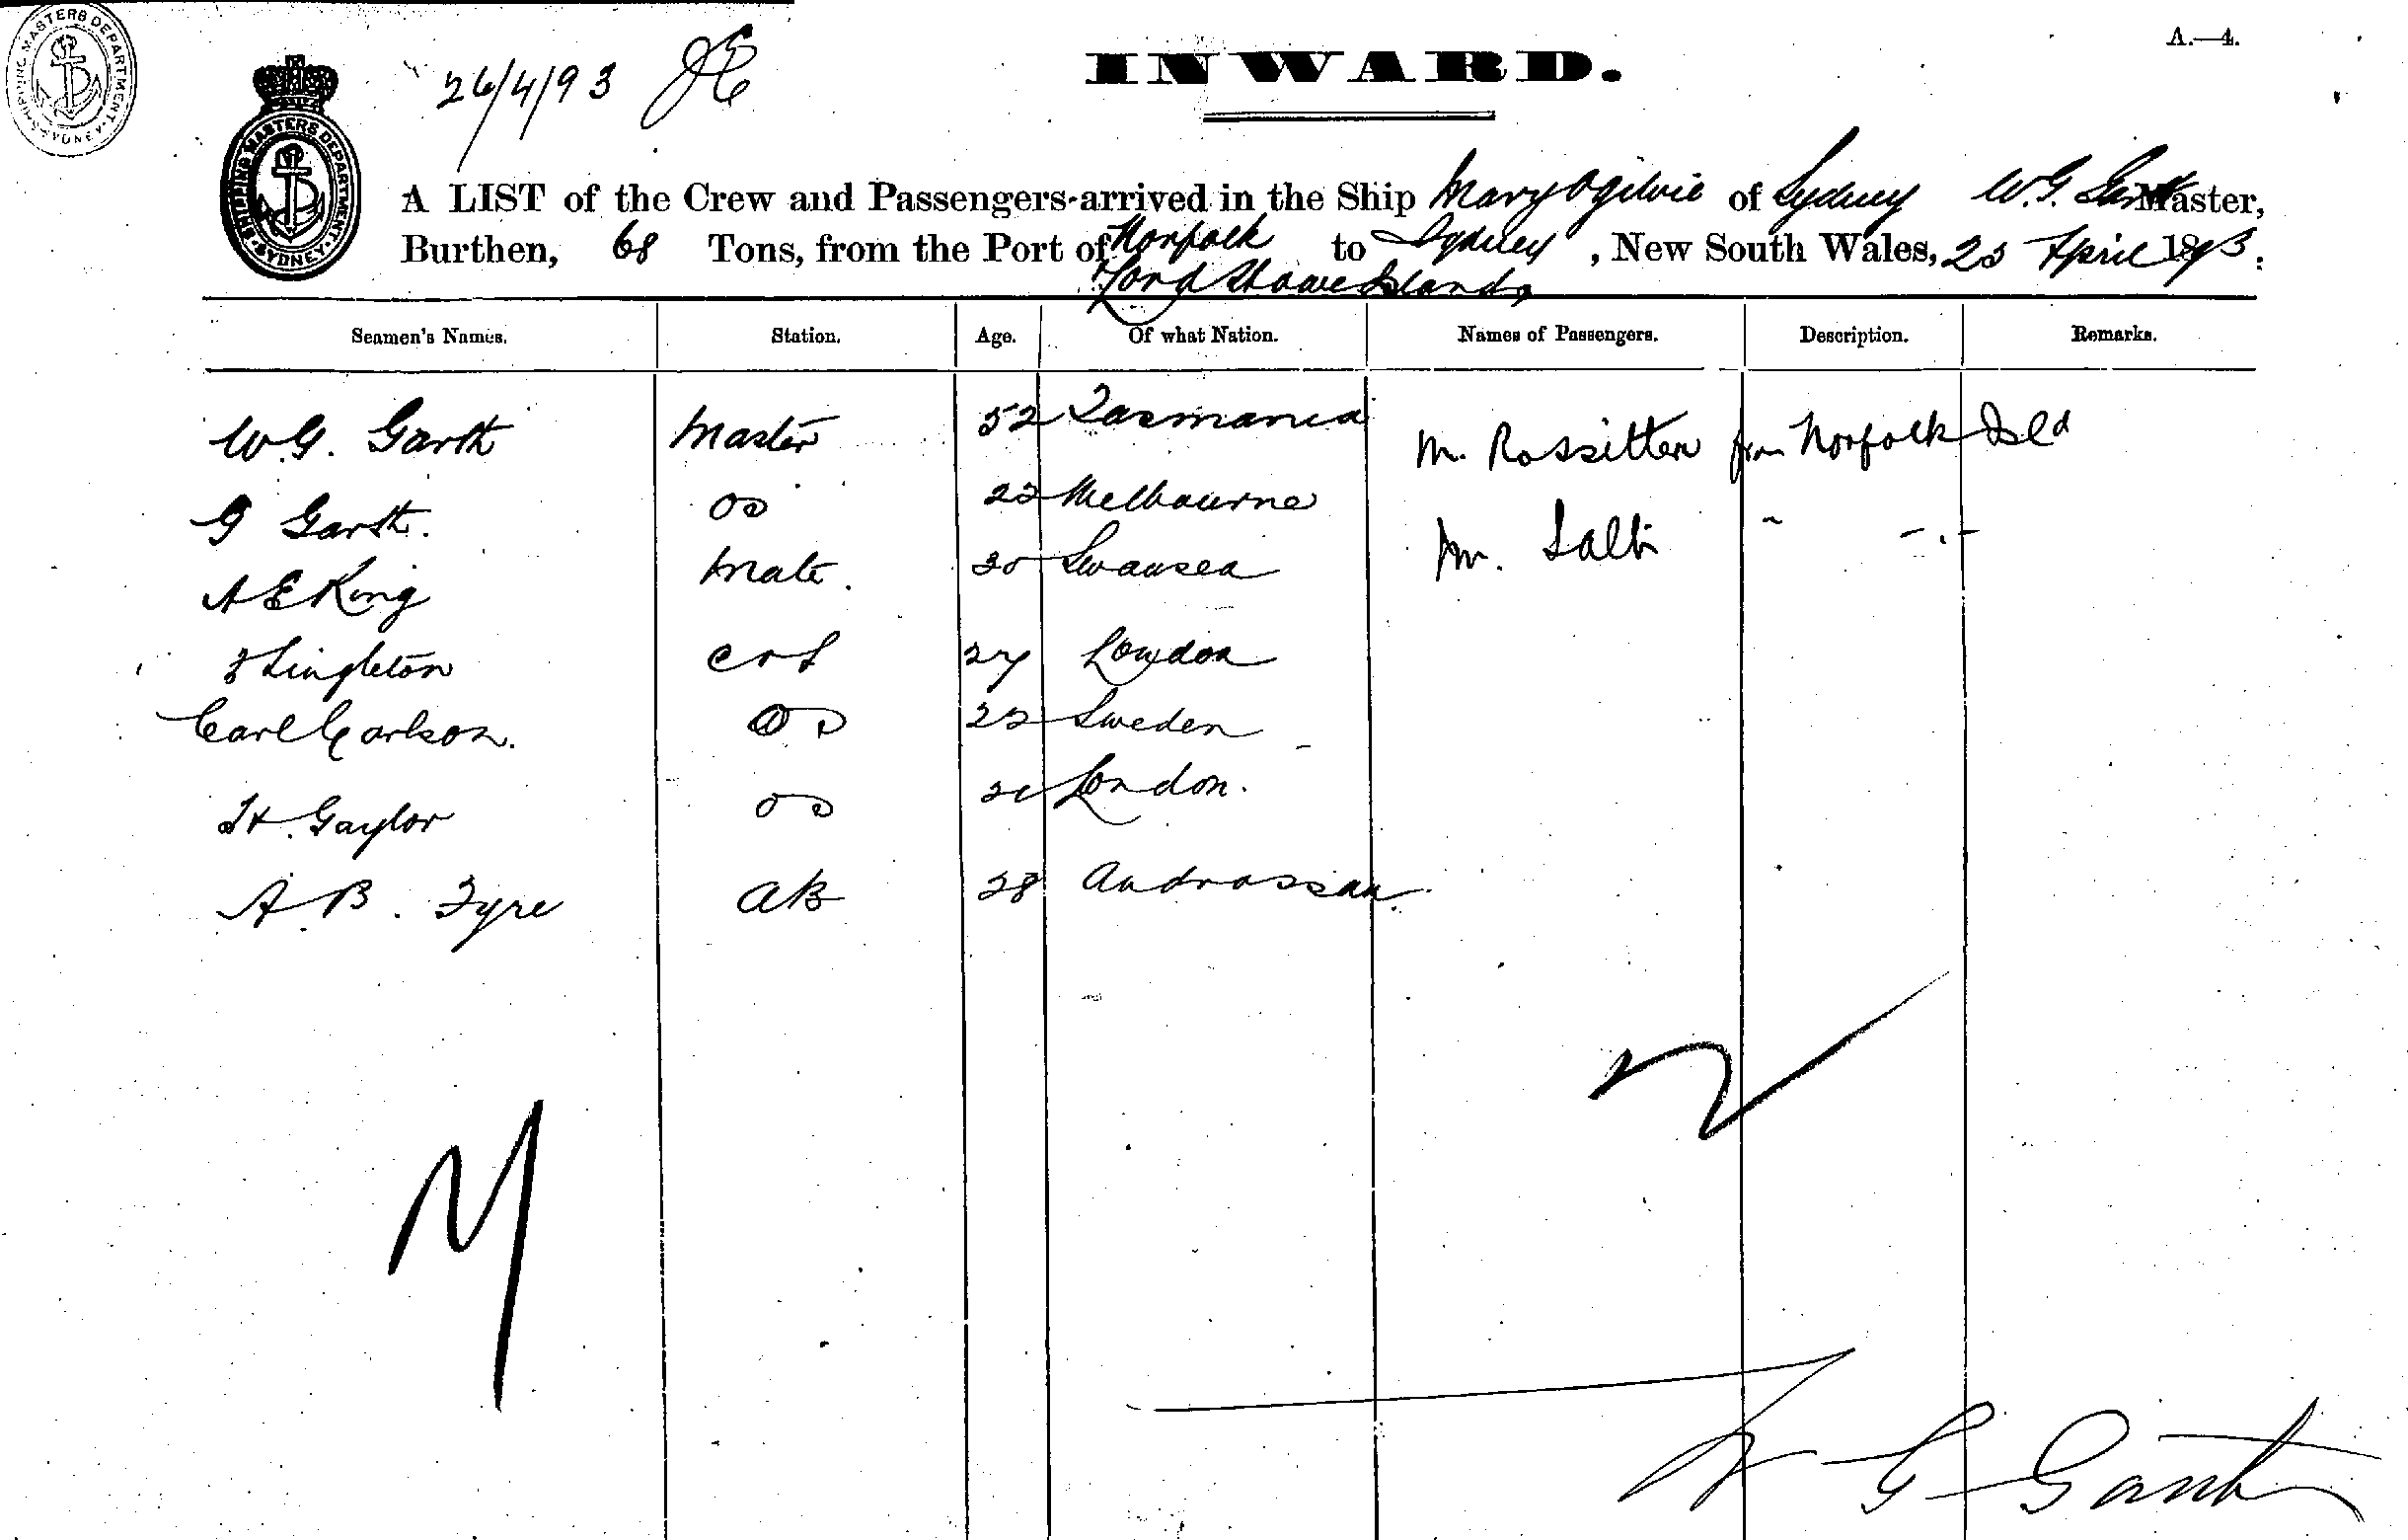 SHIPPING MASTERS DEPARTMENT SYDNEY
A.—4.
26/4/93
INWARD.
SHIPPING MASTERS DEPARTMENT SYDNEY
A LIST of the Crew and Passengers arrived in the Ship Mary Ogilvie of Sydney W.G. Garth Master,
Burthen, 68 Tons, from the Port of Norfolk to Sydney, New South Wales, 25 April 1893.
Lord Howe Islands
Seamen's Names. Station. Age. Of what Nation. Names of Passengers. Description. Remarks.
W.G. Garth Master 52 Tasmania M. Rossitter from Norfolk Isld
G Garth. OS 22 Melbourne
A E King Mate. Swansea
Singleton 27 London
Carl Carlson. OS 22 Sweden
H. Gaylor OS 21 London.
A B. Fyre AB 28 Androssan.
W G Garth